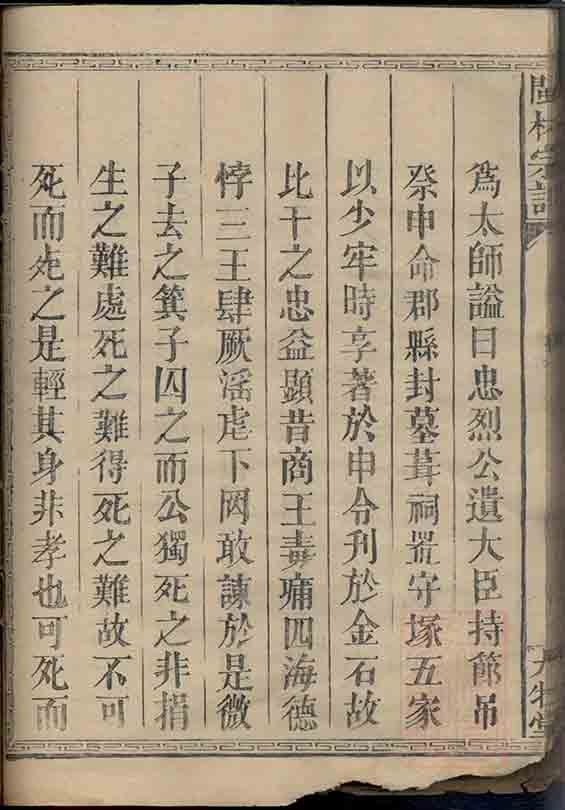 爲太師諡曰忠烈公遺大臣持節吊
祭申命郡縣封墓葺祠置守塚五家
以少牢時享著於甲令刊於金石故
比干之忠益顯昔商王毒痡四海德
悖三王肆厥滛虐下罔敢諫於是微
子去之箕子囚之而公獨死之非捐
生之難處死之難得死之難故不可
死而死之是輕其身非孝也可死而
閩林宗譜